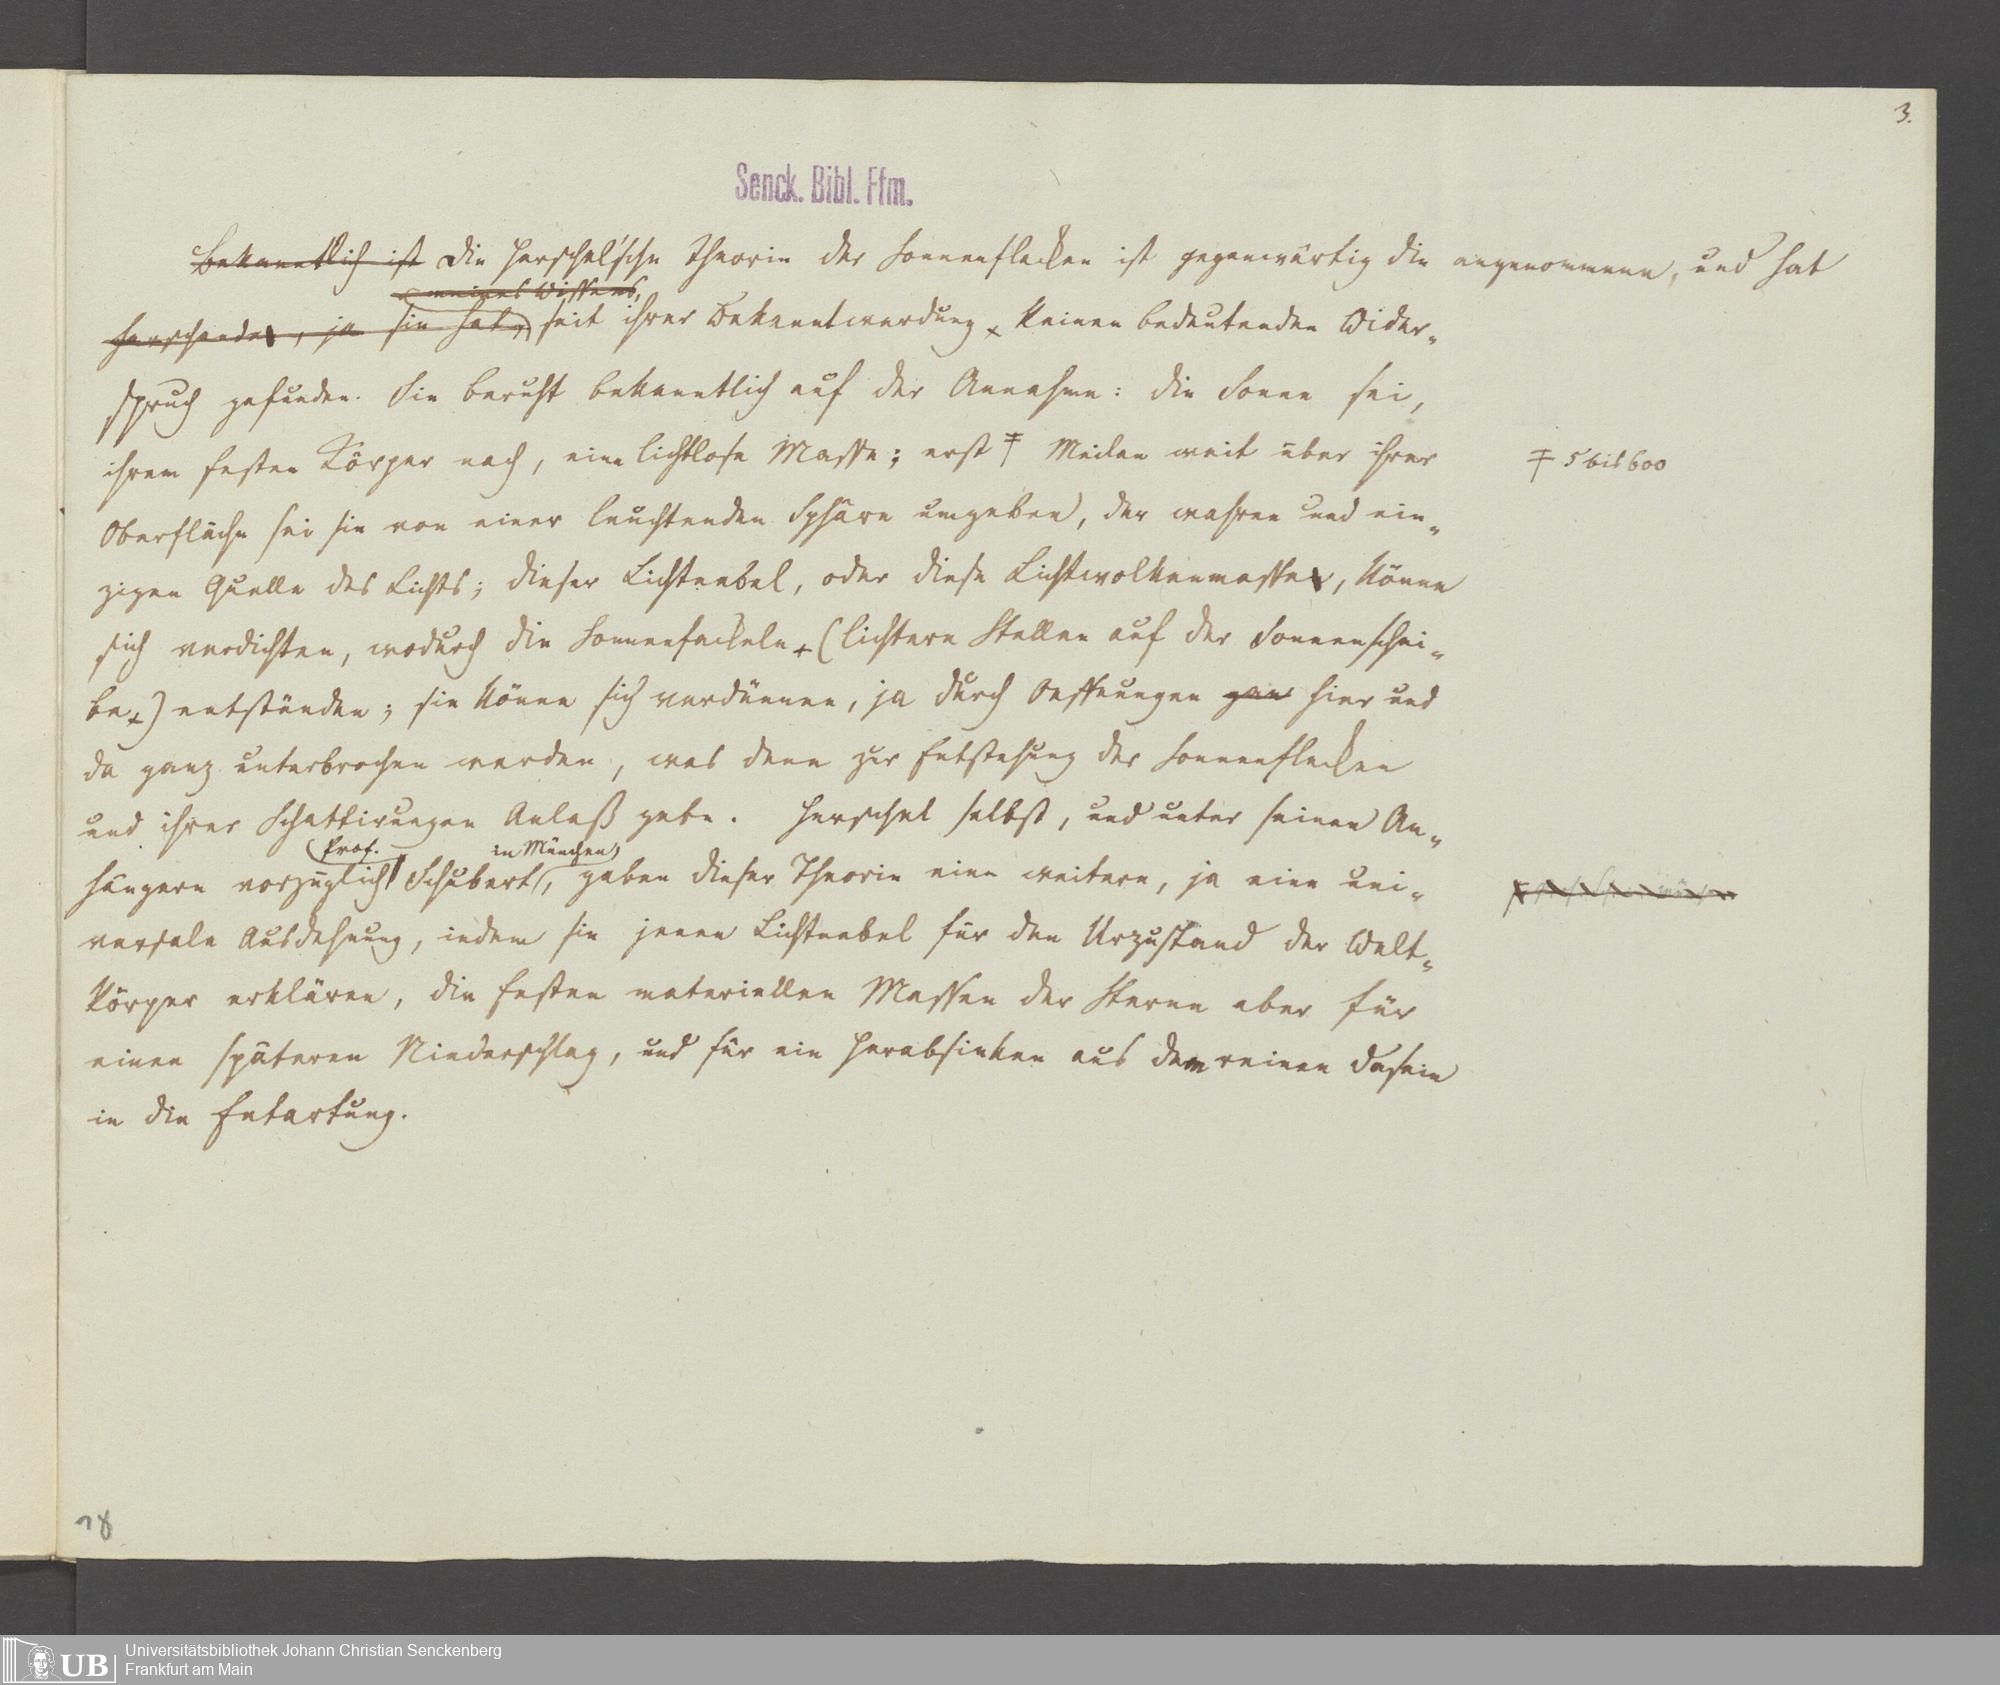 3.
Senck. Bibl. Ffm.
Bekanntlich ist Die Herschel'sche Theorie der Sonnenflecken ist gegenwärtig die angenommene, und hat
meines Wissens,
herrschende, ja sie hat, seit ihrer Bekanntwerdung keinen bedeutenden Wider-
spruch gefunden. Sie beruht bekanntlich auf der Annahme: die Sonne sei,
ihrem festen Körper nach, eine lichtlose Masse; erst ╪ Meilen weit über ihrer
╪ 5 bis 600
Oberfläche sei sie von einer leuchtenden Sphäre umgeben, der wahren und ein-
zigen Quelle des Lichts; dieser Lichtnebel, oder diese Lichtwolkenmasse, könne
sich verdichten, wodurch die Sonnenfackeln (lichtere Stellen auf der Sonnenschei-
be) entständen; sie könne sich verdünnen, ja durch Oeffnungen gan hier und
da ganz unterbrochen werden, was denn zur Entstehung der Sonnenflecken
und ihrer Schattirungen Anlaß gebe. Herschel selbst, und unter seinen An-
Prof. in München
hängern vorzüglich Schubert, gaben dieser Theorie eine weitere, ja eine uni-
versale Ausdehnung, indem sie jenen Lichtnebel für den Urzustand der Welt-
körper erklären, die festen materiellen Massen der Sterne aber für
einen späteren Niederschlag, und für ein Herabsinken aus dem reinen Dasein
in die Entartung.
18
UB
Universitätsbibliothek Johann Christian Senckenberg
Frankfurt am Main